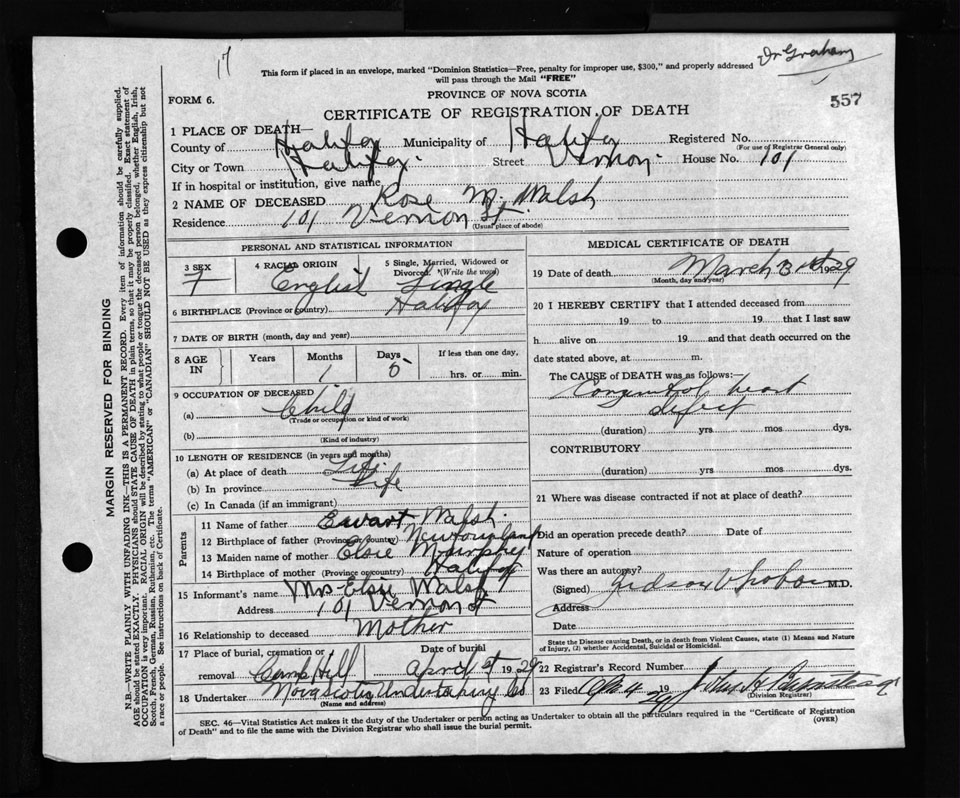 17
Dr Graham
This form if placed in an envelope, marked "Dominion Statistics—Free, penalty for improper use, $300," and properly addressed
will pass through the Mail "FREE"
PROVINCE OF NOVA SCOTIA
557
FORM 6.
CERTIFICATE OF REGISTRATION OF DEATH
1 PLACE OF DEATH—
County of Halifax Municipality of Halifax Registered No.
(For use of Registrar General only)
City or Town Halifax. Street Vernon. House No. 101
If in hospital or institution, give name
2 NAME OF DECEASED Rose M. Walsh
Residence 101 Vernon St.
(Usual place of abode)
PERSONAL AND STATISTICAL INFORMATION
3 SEX F
4 RACIAL ORIGIN English
5 Single, Married, Widowed or Divorced. (Write the word) Single
6 BIRTHPLACE (Province or country) Halifax
7 DATE OF BIRTH (month, day and year)
8 AGE IN Years Months 1 Days If less than one day, hrs. or min.
9 OCCUPATION OF DECEASED
(a) Child
(Trade or occupation or kind of work)
(b)
(Kind of industry)
10 LENGTH OF RESIDENCE (in years and months)
(a) At place of death Life
(b) In province Life
(c) In Canada (if an immigrant)
Parents
11 Name of father Ewart Walsh.
12 Birthplace of father (Province or country) Newfoundland
13 Maiden name of mother Elsie Murphy
14 Birthplace of mother (Province or country) Halifax
15 Informant's name Mrs Elsie Walsh
Address 101 Vernon St
16 Relationship to deceased Mother
17 Place of burial, cremation or removal Camp Hill
Date of burial April 1929
18 Undertaker Nova Scotia Undertaking Co
(Name and address)
MEDICAL CERTIFICATE OF DEATH
19 Date of death March 31st 1929
(Month, day and year)
20 I HEREBY CERTIFY that I attended deceased from
19 to 19 that I last saw
h alive on 19 and that death occurred on the
date stated above, at m.
The CAUSE of DEATH was as follows:—
Congenital heart
defect
(duration) yrs mos dys.
CONTRIBUTORY
(duration) yrs. mos dys.
21 Where was disease contracted if not at place of death?
Did an operation precede death? Date of
Nature of operation
Was there an autopsy?
(Signed) Judson V Graham M.D.
Address
Date
State the Disease causing Death, or in death from Violent Causes, state (1) Means and Nature
of Injury, (2) whether Accidental, Suicidal or Homicidal.
22 Registrar's Record Number
23 Filed Apr 4 1929 John H
(Division Registrar)
SEC. 46—Vital Statistics Act makes it the duty of the Undertaker or person acting as Undertaker to obtain all the particulars required in the "Certificate of Registration
of Death" and to file the same with the Division Registrar who shall issue the burial permit.
(OVER)
MARGIN RESERVED FOR BINDING
N.B.—WRITE PLAINLY WITH UNFADING INK—THIS IS A PERMANENT RECORD. Every item of information should be carefully supplied.
AGE should be stated EXACTLY. PHYSICIANS should STATE CAUSE OF DEATH in plain terms, so that it may be properly classified. Exact statement of
OCCUPATION is very important. RACIAL ORIGIN will be described by stating to what people or tongue the deceased person belonged, whether English, Irish,
Scotch, French, German, Russian, Ruthenian, etc. The terms "AMERICAN" or "CANADIAN" SHOULD NOT BE USED as they express citizenship but not
a race or people. See instructions on back of Certificate.